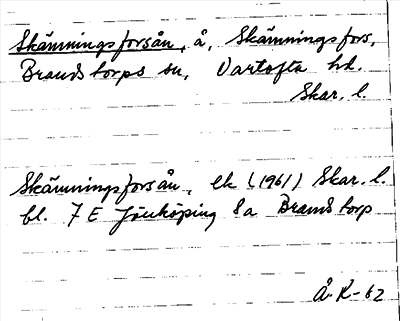 Skämningsforsån, å, Skämningsfors,
Brandstorps sn, Vartofta hd.
Skar. l.
Skämningsforsån, ek (1961) Skar. l.
bl. 7 E Jönköping 8a Brandstorp
Å. K-62